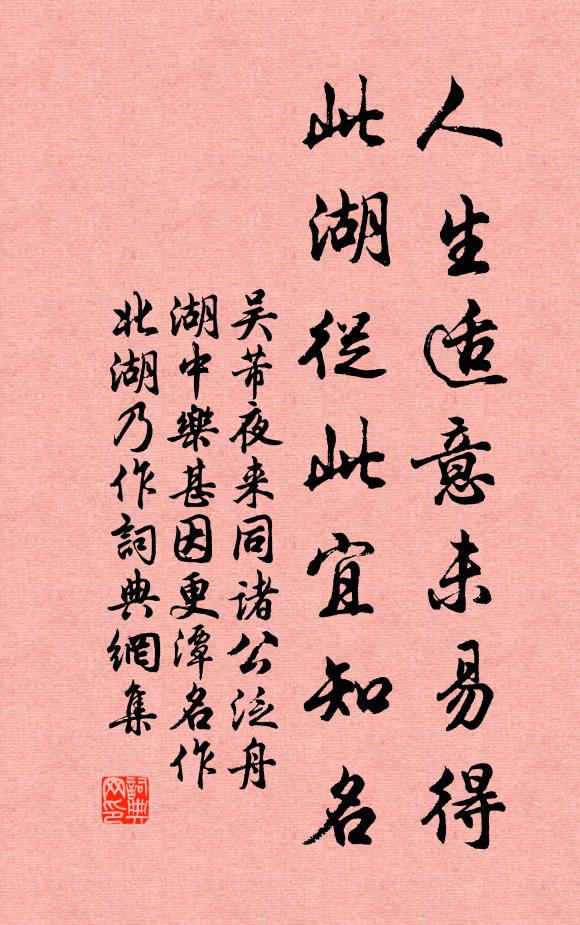 人生适意未易得
此湖從此宜知名
吴芾夜来同诸公泛舟
湖中樂甚因更潭名作
北湖乃作詞典網集
詞典
网印